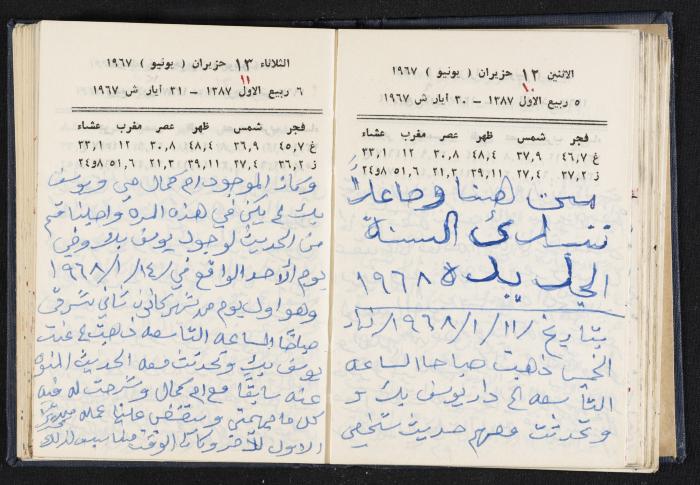 الاثنين ١٢ حزيران ( يونيو ) ١٩٦٧
١٠
٥ ربيع الاول ١٣٨٧ – ٣٠ أيار ش ١٩٦٧
فجر شمس ظهر عصر مغرب عشاء
غ ٤٦,٧ ٣٧,٩ ٤٨,٤ ٣٠,٨ ١٢ ٣٣,١
ز ٣٧,٢ ٢٧,٤ ٣٩,١١ ٢١,٣ ٥١,٦ ٢٤و٨
من هنا وصاعداً
تبتدئ السنة
الجديدة ١٩٦٨
بتاريخ ١١/١/١٩٦٨ نهار
الخميس ذهبت صباحا الساعه
التاسعه الى دار يوسف بك
وتحدثت معهم حديث شخصي
الثلاثاء ١٣ حزيران ( يونيو ) ١٩٦٧
١١
٦ ربيع الاول ١٣٨٧ – ٣١ أيار ش ١٩٦٧
فجر شمس ظهر عصر مغرب عشاء
غ ٤٥,٧ ٣٦,٩ ٤٨,٤ ٣٠,٨ ١٢ ٣٣,١
ز ٣٦,٢ ٢٧,٤ ٣٩,١١ ٢١,٣ ٥١,٦ ٢٤و٨
وكان الموجود ام كمال مي ويوسف
بك لم يكن في هذه المرة واصلينا
من الحديث لوجود يوسف بك وفي
يوم الأحد الواقع في ١٤/١/١٩٦٨
وهو اول يوم من شهر كانون ثاني شرقي
صباحًا الساعه التاسعه ذهبت
يوسف بك وتحدثت معه الحديث المنوه
عنه سابقًا مع ام كمال وشرحت له فيه
كل ما يهمني علينا عمله
الاول للآخر وكان الوقت